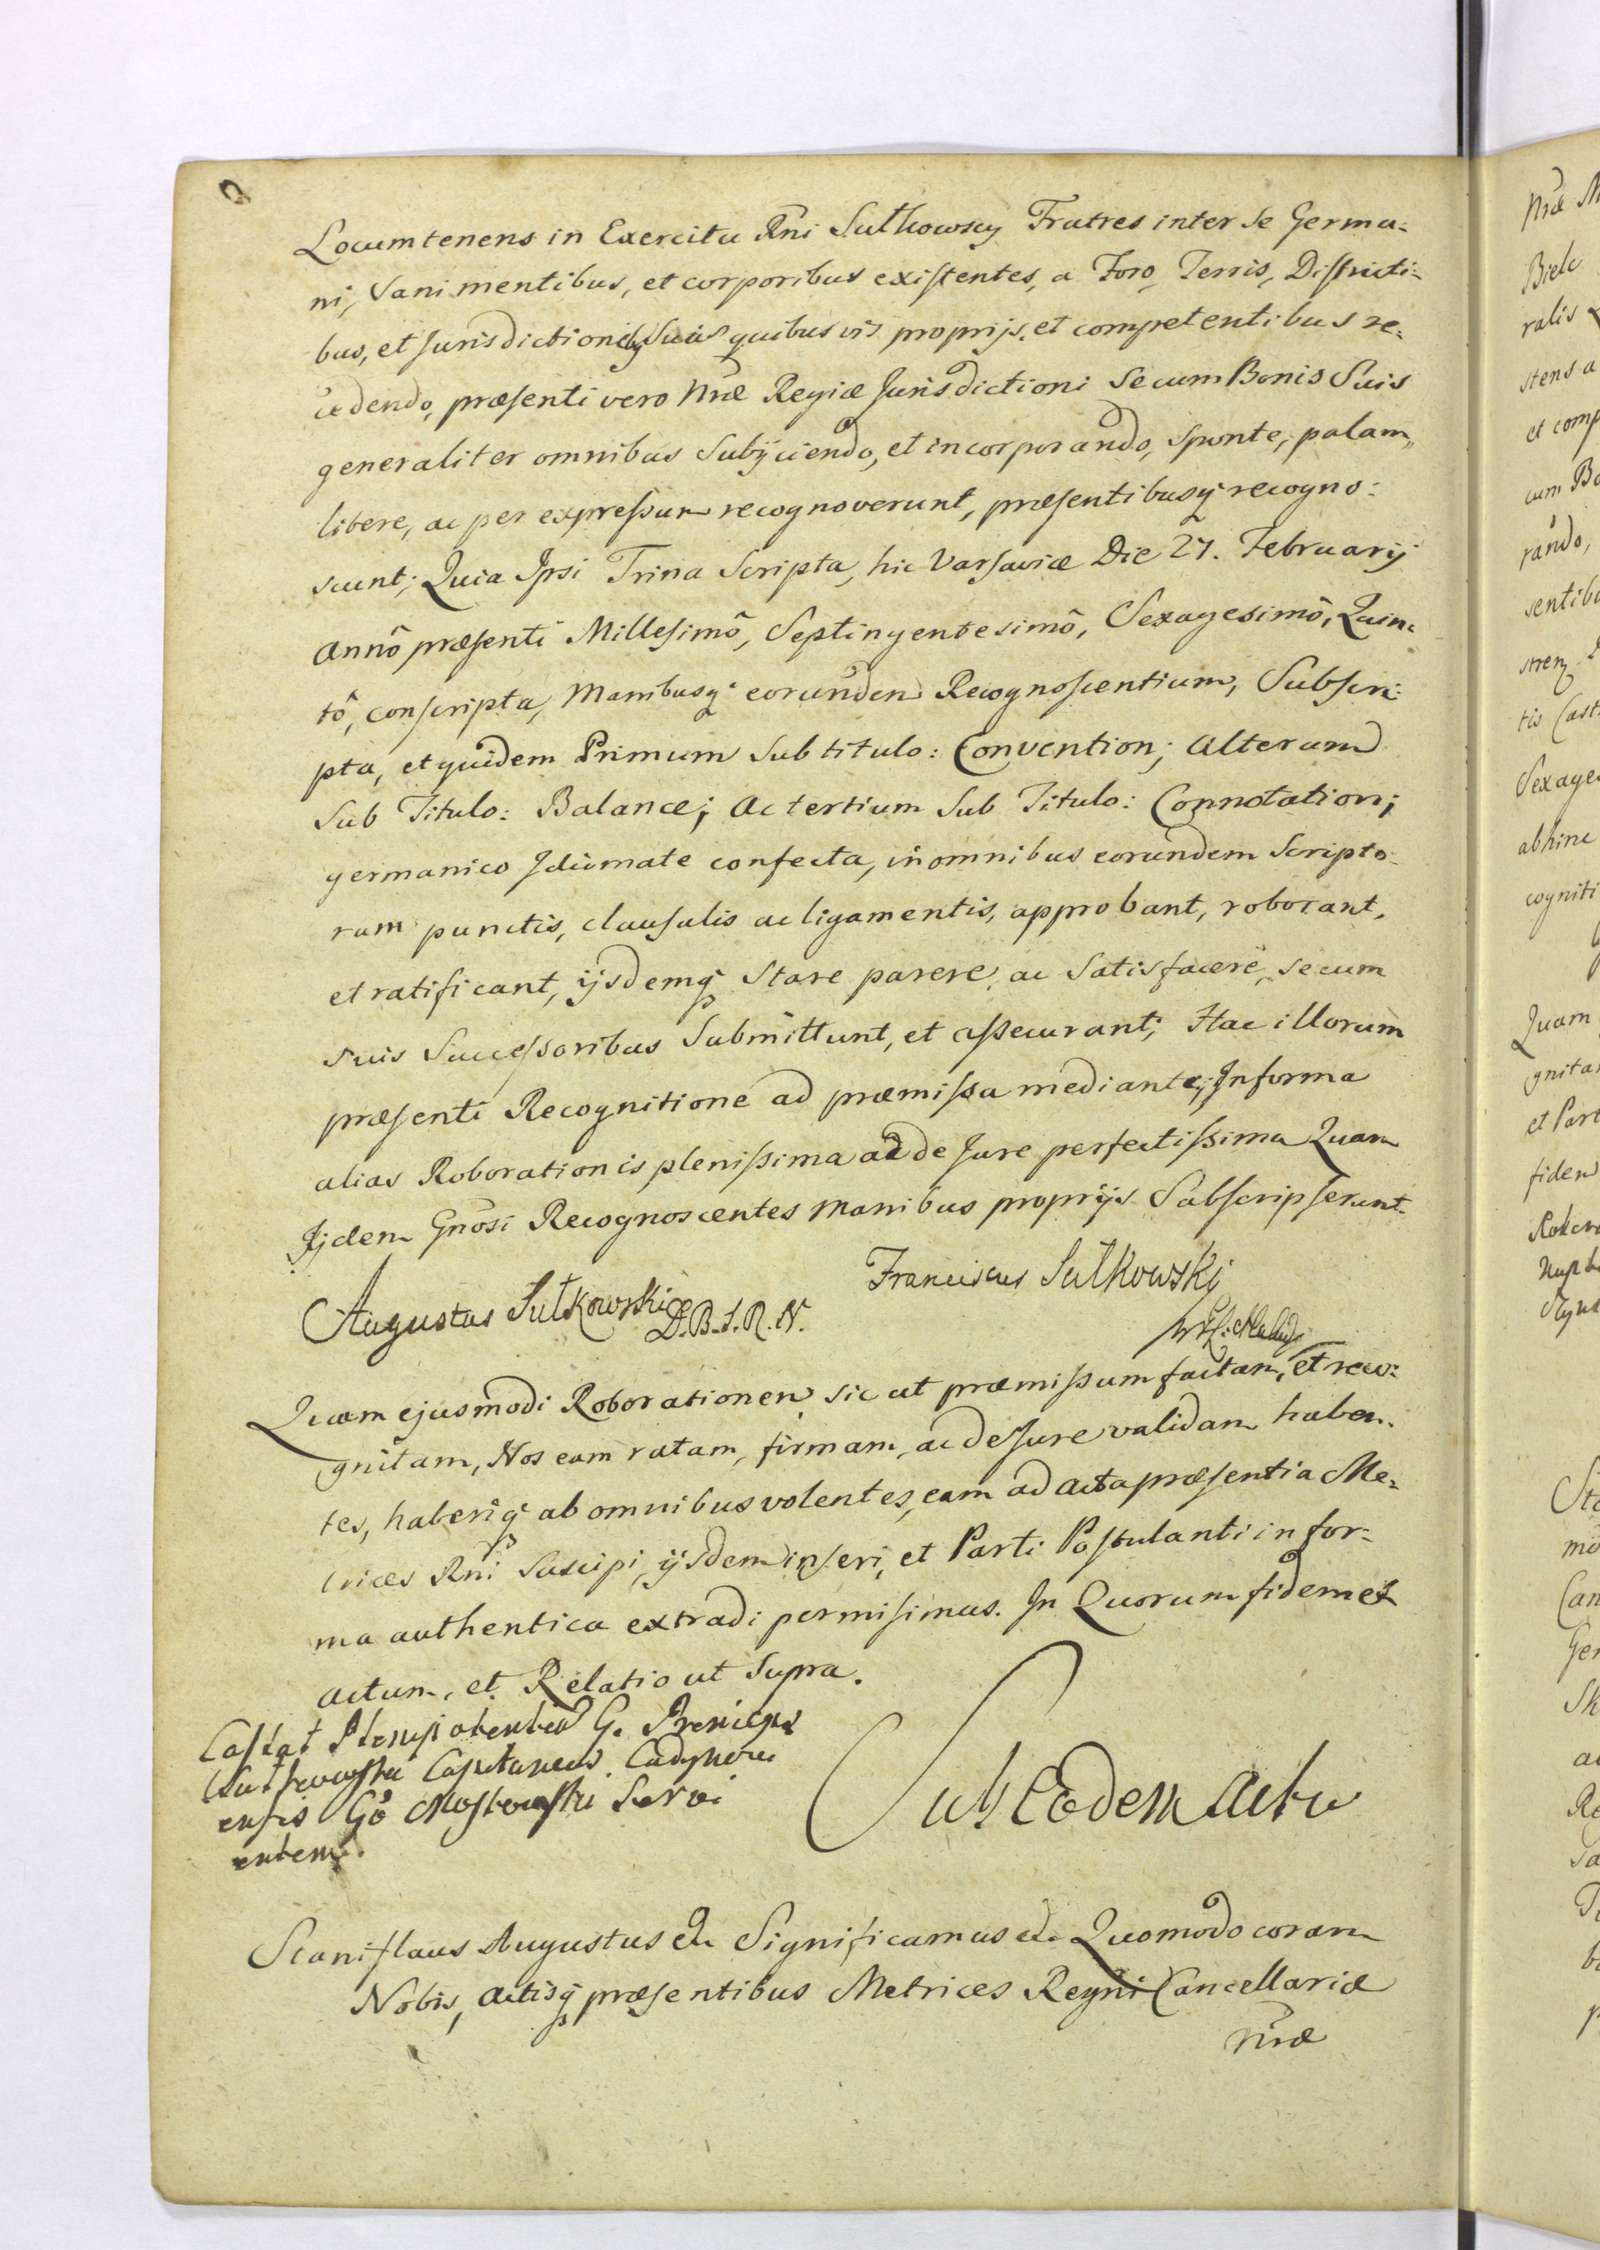 Locumtenens in Exercitu Rni Sułkowscy Fratres inter se Germa-
ni, Sani mentibus, et corporibus existentes, a Foro, Terris, Districti-
bus, et Jurisdictionibq Suis quibusvis proprijs, et competentibus re-
cedendo, præsenti vero Nræ Regiæ Jurisdictioni Secum Bonis Suis
generaliter omnibus Subijciendo, et incorporando, sponte, palam,
libere, ac per expressum recognoverunt, præsentibusq recogno-
scunt; Quia Ipsi Trina Scripta, hic Varsaviæ Die 27. Februarij
Annô præsenti Millesimô, Septingentesimô, Sexagesimô, Quin-
tô, conscripta, Manibusq eorundem Recognoscentium, Subscri-
pta, et quidem Primum Sub titulo: Convention; Alterum
Sub Titulo: Balance; Ac tertium Sub Titulo: Connotation;
germanico Idiomate confecta, in omnibus eorundem Scripto-
rum punctis, clausulis ac ligamentis, approbant, roborant,
et ratificant, ijsdemq Stare parere, ac Satisfacere, secum
suis Successoribus Submittunt, et assecurant; Hac illorum
præsenti Recognitione ad præmissa mediante; In forma
alias Roborationis plenissima ac de Jure perfectissima Quam
Ijdem Gnosi Recognoscentes manibus proprijs Subscripserunt.
Augustus Sułkowski D.B.S.R.N.
Franciscus Sułkowskj
Quam ejusmodi Roborationem sic ut præmissum factam, et reco-
gnitam, Nos eam ratam, firmam, ac de Jure validam haben-
tes, haberiq ab omnibus volentes, eam ad Acta præsentia Me-
trices Rni Suscipi, ijsdem inseri, et Parti Postulanti in for-
ma authentica extradi permisimus. In Quorum fidem et
Actum, et Relatio ut Supra.
Sub Eodem Actu
Stanislaus Augustus &c Significamus &c Quomodo coram
Nobis, Actisq præsentibus Metrices Regni Cancellariæ
nræ